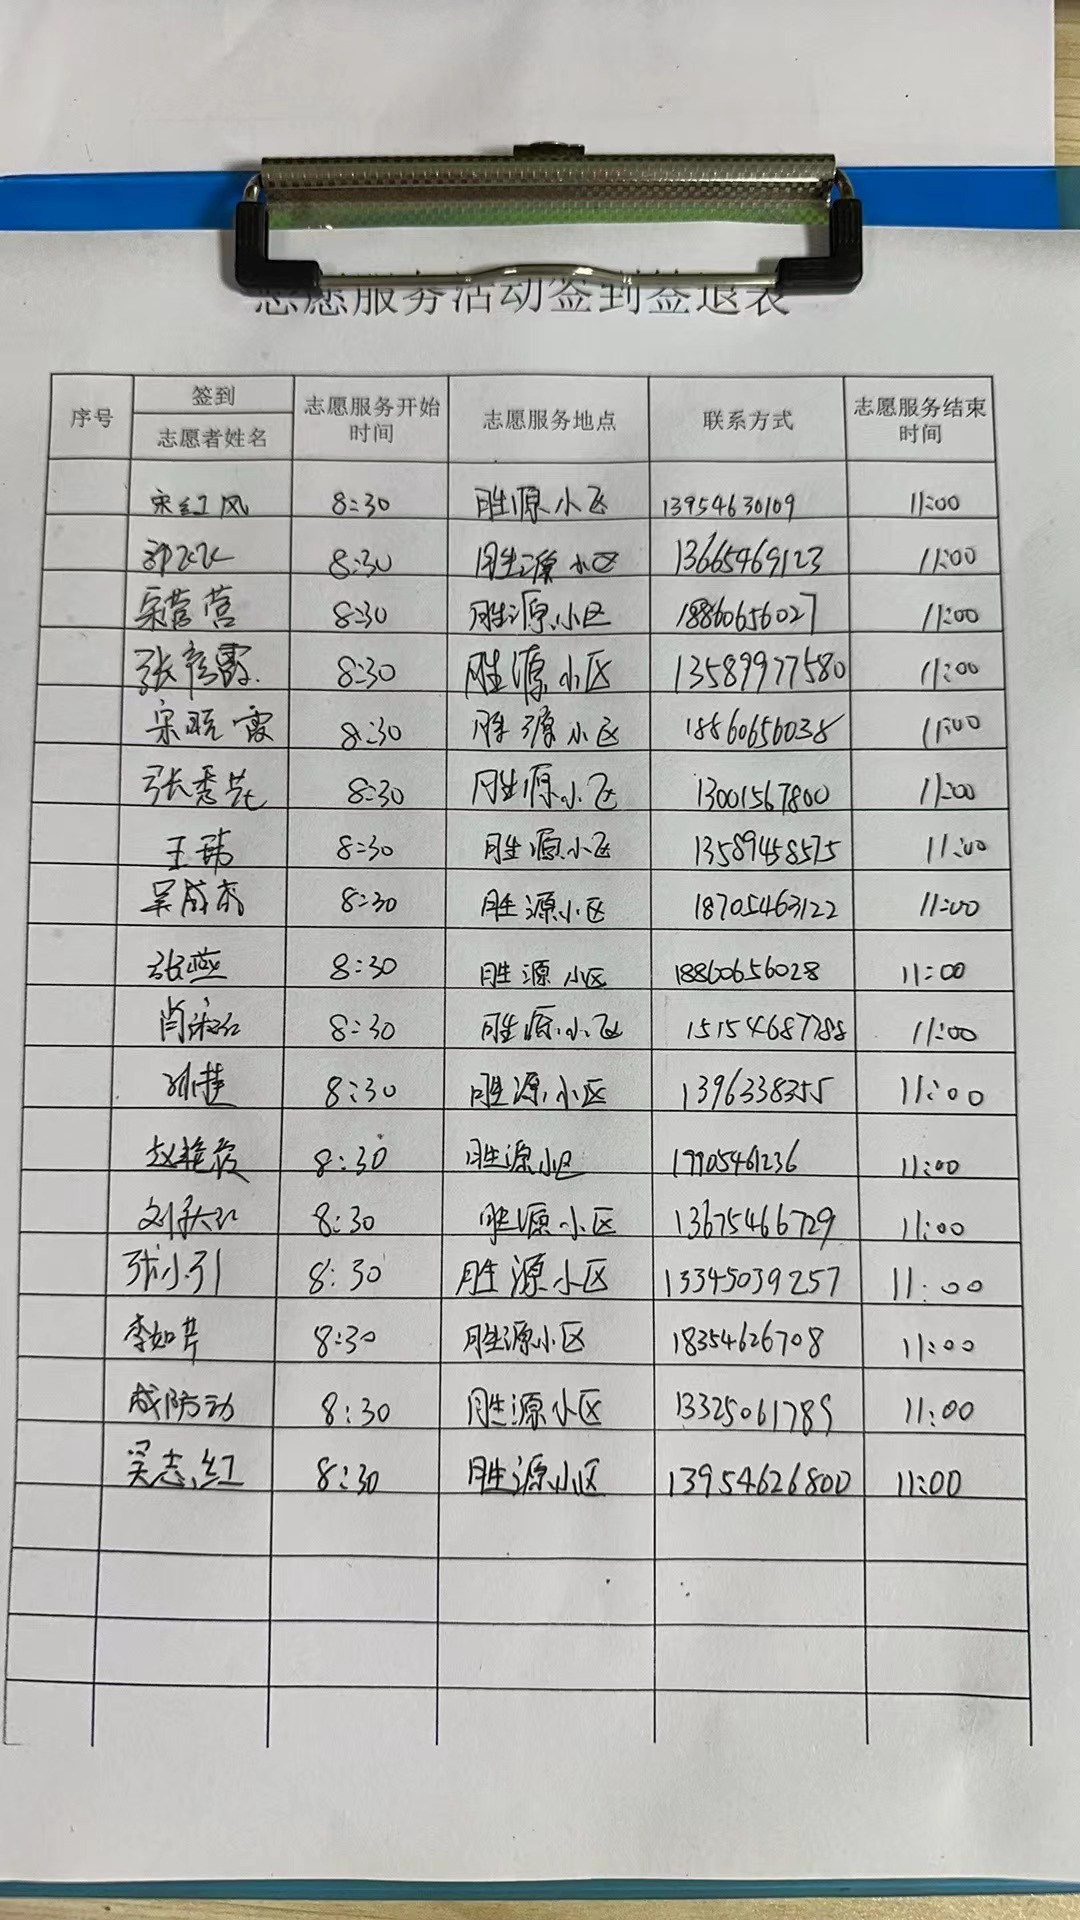 志愿服务活动签到签退表
序号 签到 志愿者姓名 志愿服务开始时间 志愿服务地点 联系方式 志愿服务结束时间
宋红风 8:30 胜源小区 13954630109 11:00
8:30 胜源小区 13665469123 11:00
宋营营 8:30 胜源小区 18860656027 11:00
张彦霞 8:30 胜源小区 13589977580 11:00
宋晓霞 8:30 胜源小区 18860656038 11:00
张秀芹 8:30 胜源小区 13001567800 11:00
王玮 8:30 胜源小区 13589458575 11:00
吴成香 8:30 胜源小区 18705463122 11:00
张燕 8:30 胜源小区 18860656028 11:00
肖淑红 8:30 胜源小区 15154687788 11:00
孙桂 8:30 胜源小区 1396338355 11:00
赵艳霞 8:30 胜源小区 19905461236 11:00
8:30 胜源小区 13675466729 11:00
张小引 8:30 胜源小区 13345039257 11:00
李如芹 8:30 胜源小区 18354626708 11:00
成防动 8:30 胜源小区 13325061789 11:00
吴志红 8:30 胜源小区 13954626800 11:00